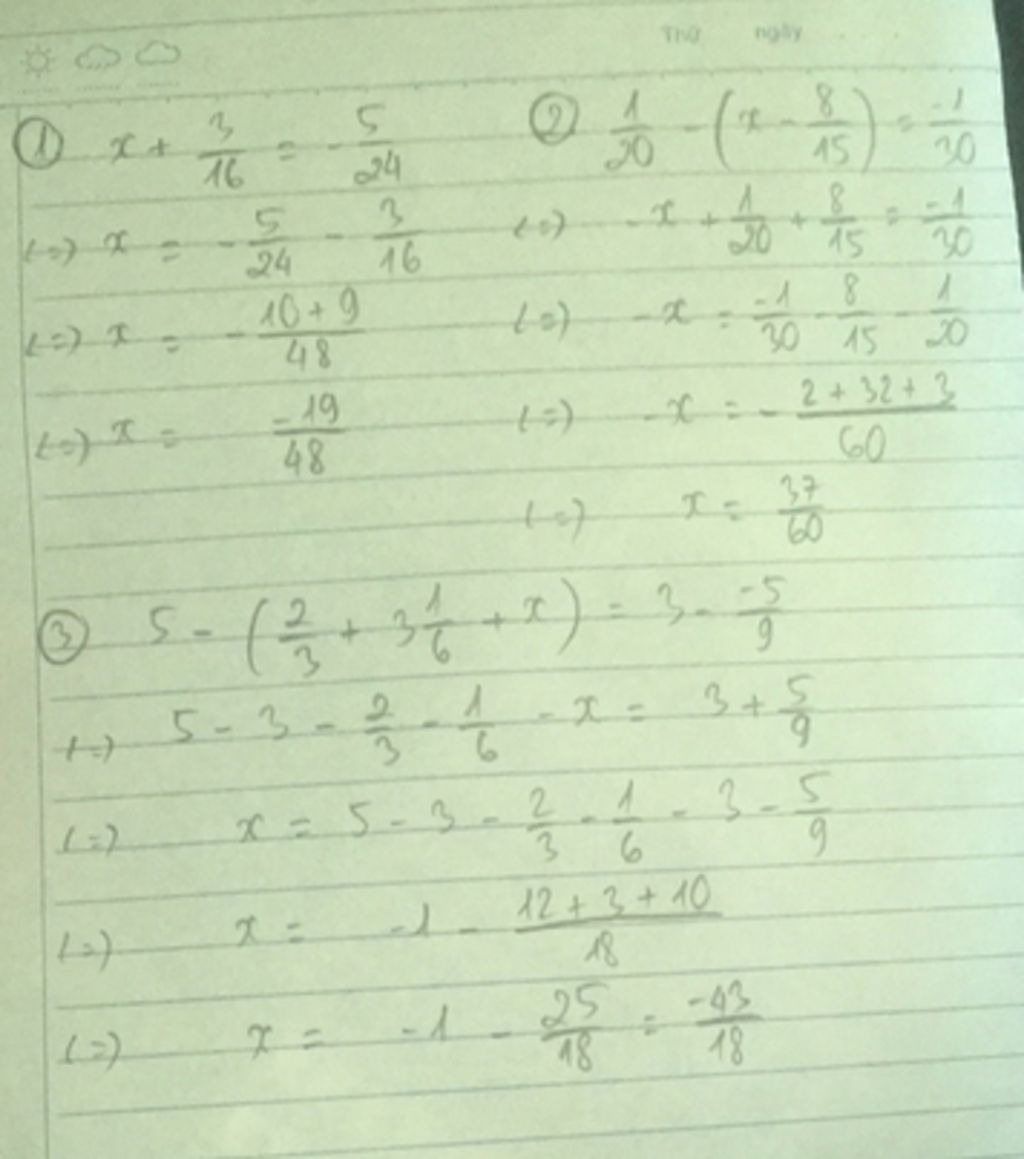 Thứ ngày
① x + 3/16 = - 5/24
(=) x = - 5/24 - 3/16
(=) x = - (10 + 9)/48
(=) x = -19/48
② 1/20 - (x - 8/15) = -1/30
(=) - x + 1/20 + 8/15 = -1/30
(=) - x = -1/30 - 8/15 - 1/20
(=) - x = - (2 + 32 + 3)/60
(=) x = 37/60
③ 5 - (2/3 + 3 1/6 + x) = 3 - -5/9
(=) 5 - 3 - 2/3 - 1/6 - x = 3 + 5/9
(=) x = 5 - 3 - 2/3 - 1/6 - 3 - 5/9
(=) x = -1 - (12 + 3 + 10)/18
(=) x = -1 - 25/18 = -43/18